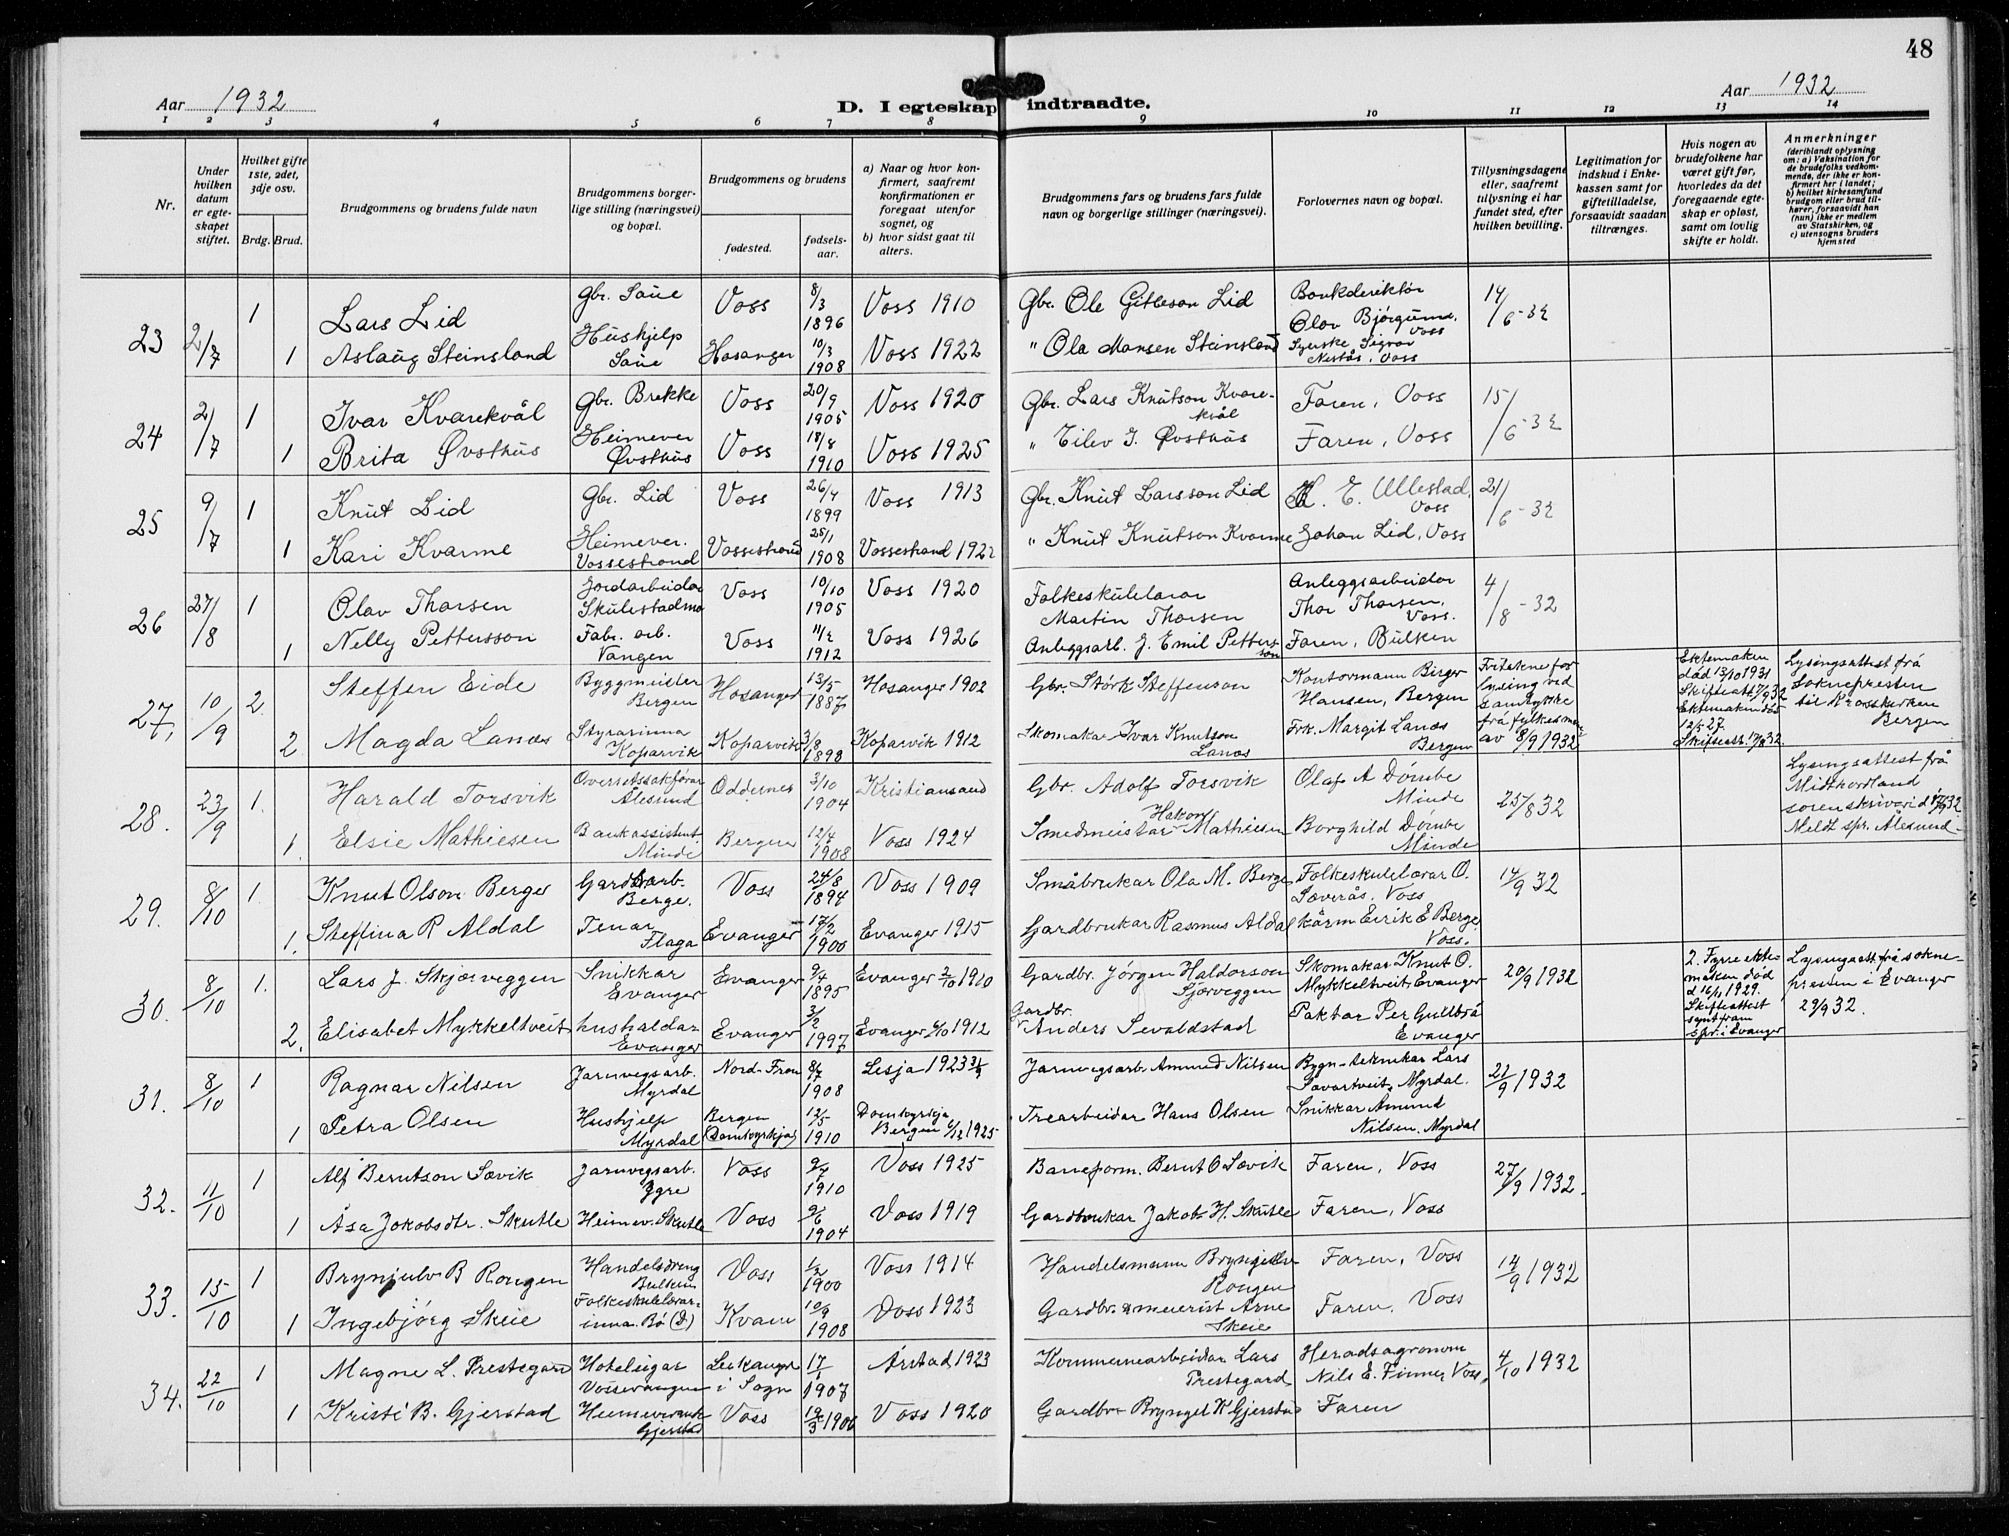 48
Aar 1932
D. I egteskap indtraadte.
Aar 1932
1 2 3 4 5 6 7 8 9 10 11 12 13 14
Nr.
Under hvilken datum er egteskapet stiftet.
Hvilket gifte 1ste, 2det, 3dje osv.
Brdg. Brud.
Brudgommens og brudens fulde navn
Brudgommens borgerlige stilling (næringsvei) og bopæl.
Brudgommens og brudens
fødested.
fødselsaar.
a) Naar og hvor konfirmert, saafremt konfirmationen er foregaat utenfor sognet, og
b) hvor sidst gaat til alters.
Brudgommens fars og brudens fars fulde navn og borgerlige stillinger (næringsvei).
Forlovernes navn og bopæl.
Tillysningsdagene eller, saafremt tillysning ei har fundet sted, efter hvilken bevilling.
Legitimation for indskud i Enkekassen samt for giftetilladelse, forsaavidt saadan tiltrænges.
Hvis nogen av brudefolkene har været gift før, hvorledes da det foregaaende egteskap er opløst, samt om lovlig skifte er holdt.
Anmerkninger (deriblandt oplysning om: a) Vaksination for de brudefolks vedkommende, der ikke er konfirmert her i landet; b) hvilket kirkesamfund brudgom eller brud tilhører, forsaavidt han (hun) ikke er medlem av Statskirken, og c) utensogns bruders hjemsted
23 2/7 1 Lars Lid Gbr. Saue Voss 8/3 1896 Voss 1910 Gbr. Ole Gitleson Lid Bankdirektør Olav Bjørgum, Voss 14/6-32
1 Aslaug Steinsland Hushjelp Saue Hosanger 10/3 1908 Voss 1922 " Ola Monsen Steinsland Syerske Sigvor Nestås, Voss
24 2/7 1 Ivar Kvarekvål Gbr. Brekke Voss 20/9 1905 Voss 1920 Gbr. Lars Knutson Kvarekvål Faren, Voss 15/6-32
1 Brita Øvsthus Heimever Øvsthus Voss 18/8 1910 Voss 1925 " Eilev J. Øvsthus Faren, Voss
25 9/7 1 Knut Lid Gbr. Lid Voss 26/4 1899 Voss 1913 Gbr. Knut Larsson Lid K. E. Ullestad, Voss 21/6-32
1 Kari Kvarme Heimever. Vossestrand Vossestrand 25/1 1908 Vossestrand 1922 " Knut Knutson Kvarme Johan Lid, Voss
26 27/8 1 Olav Thorsen Jordarbeidar Skulestadmo Voss 10/10 1905 Voss 1920 Folkeskulelærar Martin Thorsen Anleggsarbeidar Thor Thorsen, Voss. 4/8-32
1 Nelly Pettersson Fabr. arb. Vangen Voss 11/2 1912 Voss 1926 Anleggsarb. J. Emil Pettersson Faren, Bulken
27, 10/9 2 Steffen Eide Byggmeister Bergen Hosanger 13/5 1887 Hosanger 1902 Gbr. Størk Steffenson Kontormann Birger Hansen, Bergen Fritekne for lysing ved samtykke frå fylkesmann av 8/9 1932 Ektemaken død 13/10 1931 Skifteatt. 7/9 32 Lysingsattest frå soknepresten til Krosskirken Bergen
2 Magda Lanes Styrarinna Koparvik Koparvik 3/8 1898 Koparvik 1912 Skomakar Ivar Knutson Lanes Frk. Margit Lanes Bergen Ektemaken død 12/5 27. Skifteatt. 17/8 32.
28. 23/9 1. Harald Torsvik Overrettssakførar Ålesund Oddernes 3/10 1904 Kristiansand Gbr. Adolf Torsvik Olaf A Dømbe Minde 25/8 32 Lysingsattest frå Midthordland sorenskrivari d 17/9 32 Meldt spr. Ålesund
1. Elsie Mathiesen Bankassistent Minde Bergen 12/4 1908 Voss 1924 Smedmeistar Hakon Mathiesen Borghild Dømbe Minde
29. 8/10 1. Knut Olson Berge Gardsarb. Berge. Voss 24/8 1894 Voss 1909 Småbrukar Ola M. Berge Folkeskulelærar O. Saverås. Voss 14/9 32
1. Steffina R Aldal Tenar Flaga Evanger 17/2 1900 Evanger 1915 Gardbrukar Rasmus Aldal kårm Eirik E Berge, Voss.
30. 8/10 1. Lars J. Skjerveggen Snikkar Evanger Evanger 9/4 1895 Evanger 2/10 1910 Gardbr. Jørgen Haldorson Sjerveggen Skomakar Knut O. Mykkeltveit, Evanger 20/9 1932 2. Fyrre ektemaken død d 16/11 1929. Skifteattest synt fram spr. i Evanger Lysingsatt frå soknepresten i Evanger 29/9 32.
2. Elisabet Mykkeltveit hushaldar Evanger Evanger 3/2 1997 Evanger 6/10 1912 Gardbr. Anders Sevaldstad Paktar Per Gullbrå Evanger
31. 8/10 1 Ragnar Nilsen Jarnvegsarb. Myrdal Nord-Fron 8/7 1908 Lesja 1923 Jarnvegsarb. Ammund Nilsen Bygn-teknikar Lars Tvartveit, Myrdal. 21/9 1932
1 Petra Olsen Hushjelp Myrdal Bergen (Domkyrkja) 12/5 1910 Domkyrkja Bergen 6/12 1925 Trearbeidar Hans Olsen Snikkar Amund Nilsen. Myrdal
32. 11/10 1 Alf Berntson Sævik Jarnvegsarb. Ygre Voss 9/7 1910 Voss 1925 Baneform. Bernt O Sævik Faren, Voss 27/9 1932.
1 Åsa Jokobsdtr. Skutle Heimev. Skutle Voss 9/6 1904 Voss 1919 Gardbrukar Jakob H. Skutle Faren, Voss
33. 15/10 1 Brynjulv B Rongen Handelsdreng Bulken Voss 1/2 1900 Voss 1914 Handelsmann Bryngel Rongen Faren, Voss 14/9 1932
1 Ingebjørg Skeie Folkeskulelærarinna. Bø (D) Kvam 10/9 1908 Voss 1923 Gardbr. & meierist Arne Skeie Faren, Voss
34. 22/10 1 Magne L. Prestegard Hoteleigar Vossevangen Leikanger i Sogn 17/1 1907 Årstad 1923 Kommunearbeidar Lars Prestegard Heradsagronom Nils E. Finne, Voss, 4/10 1932
1 Kristi B. Gjerstad Heimeverande Gjerstad Voss 19/3 1906 Voss 1920 Gardbr. Bryngel K Gjerstad Faren